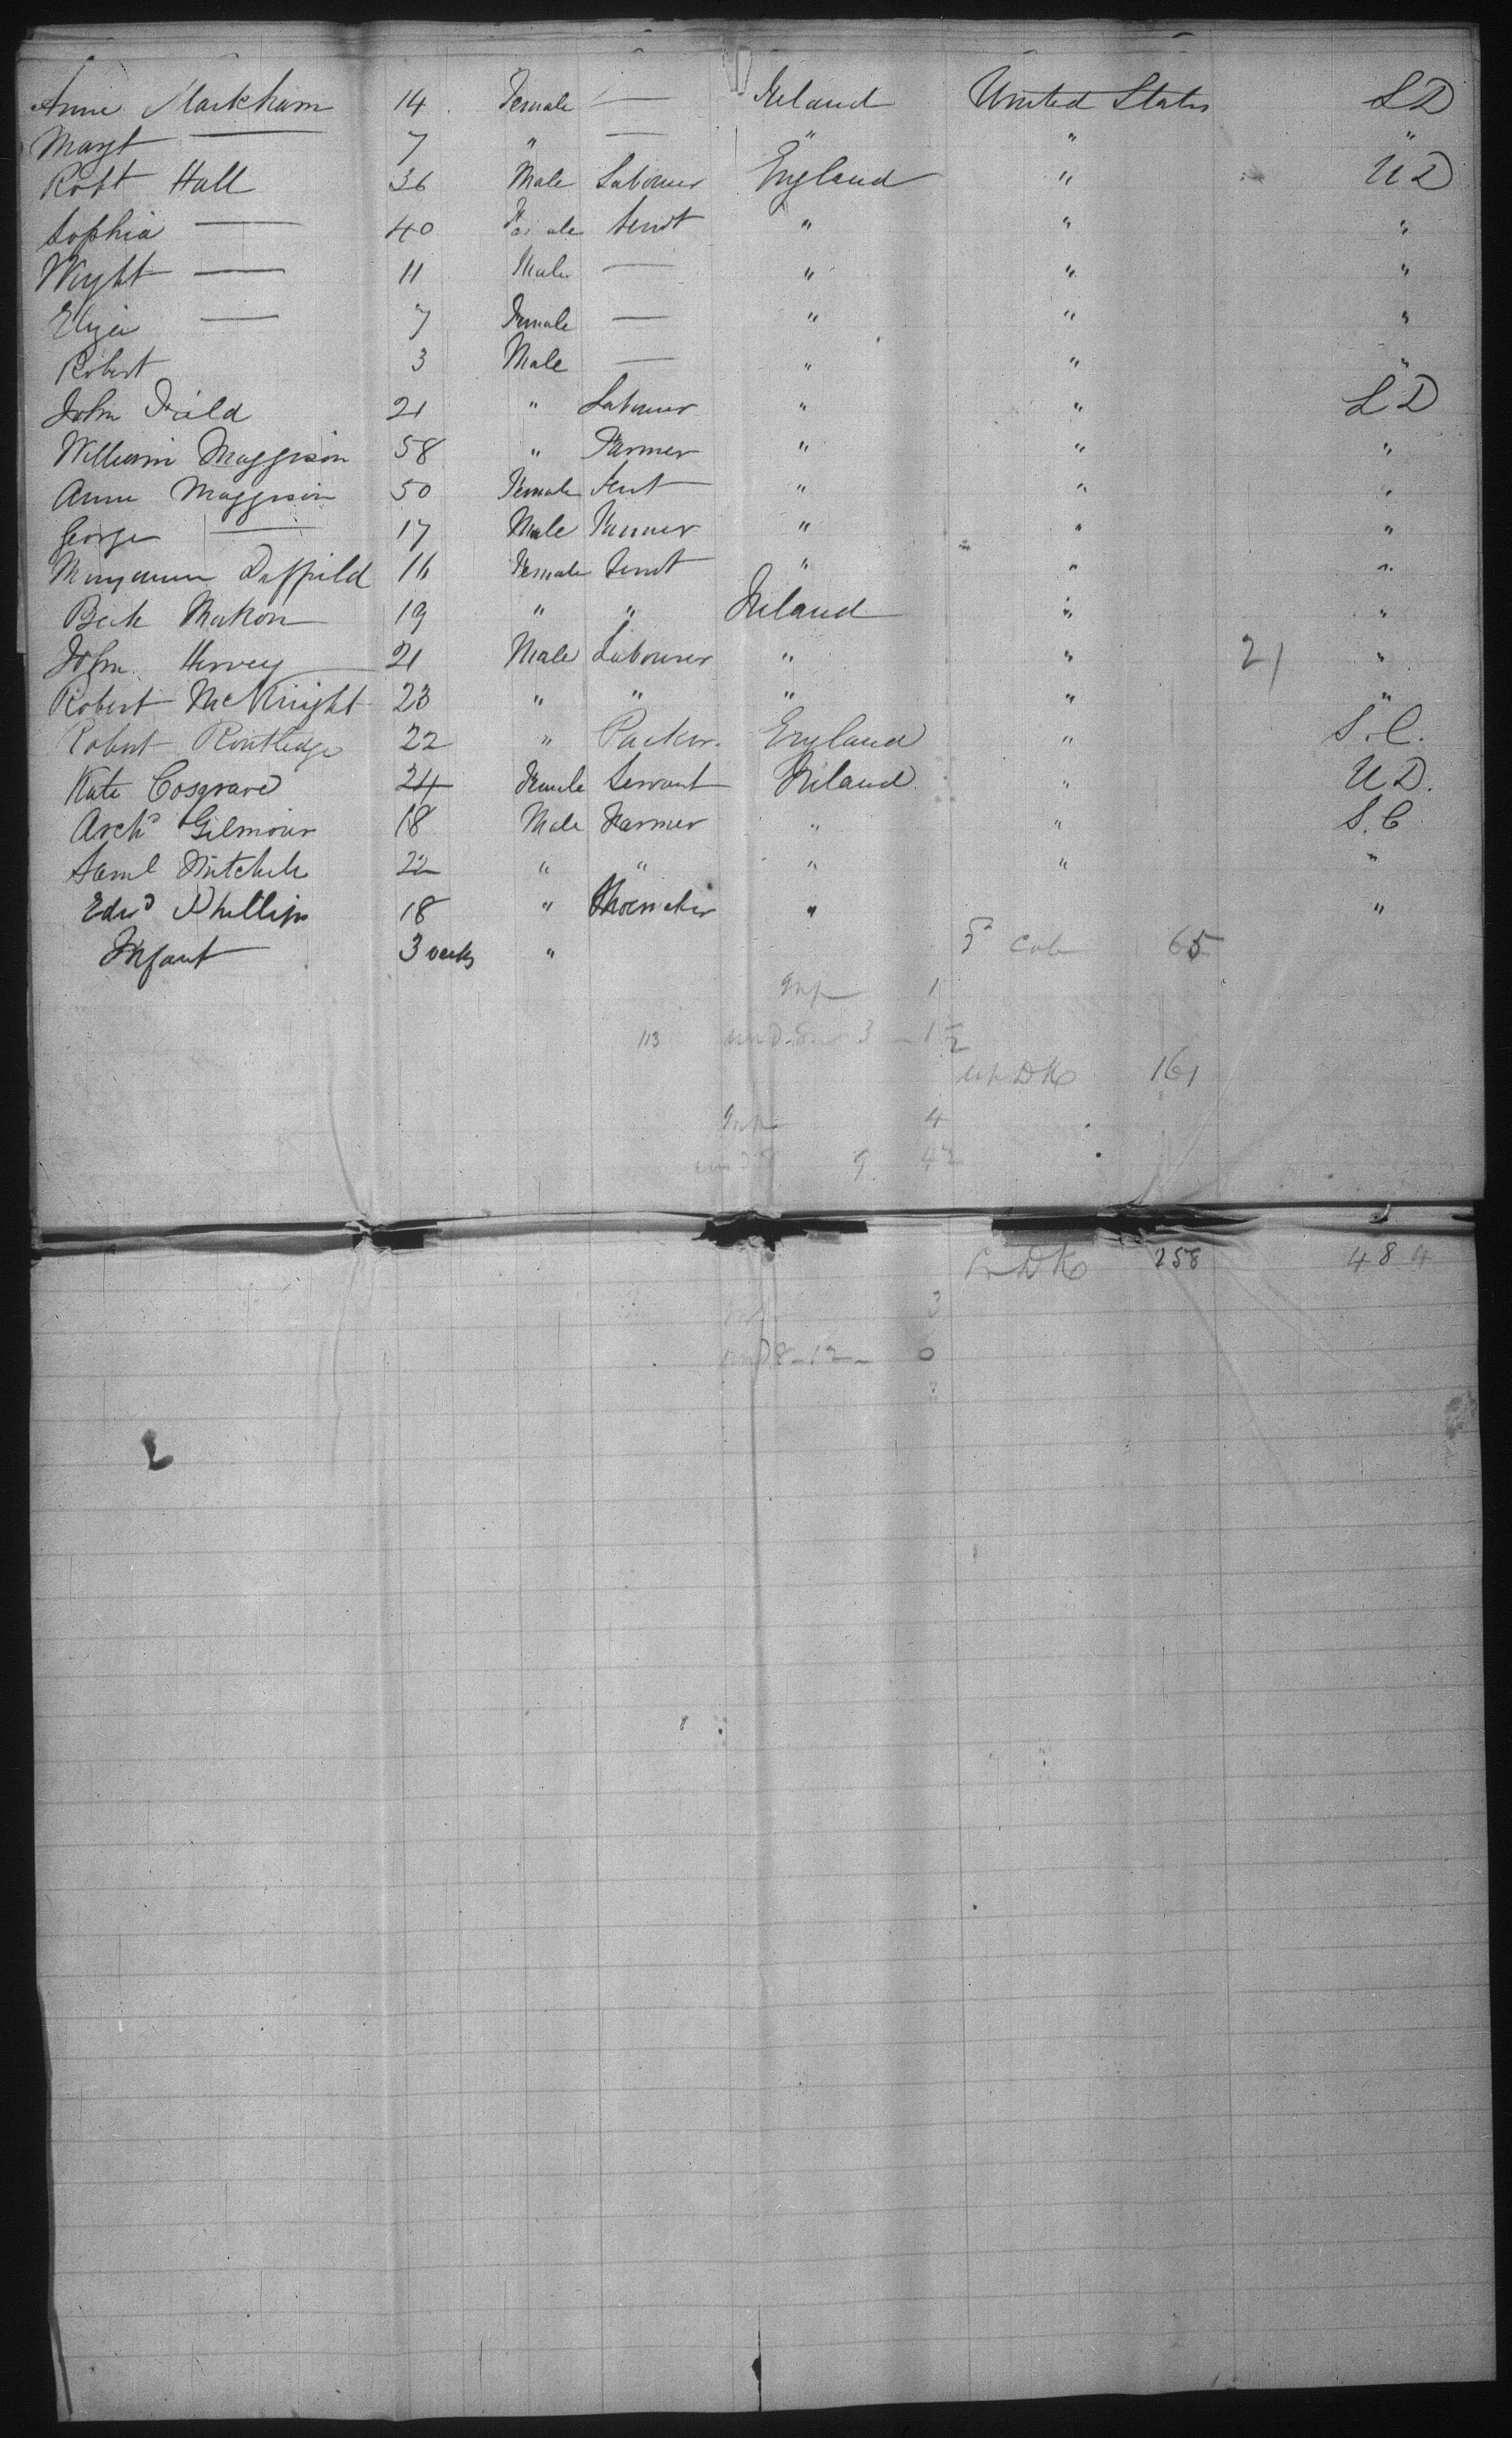 Anne Markham 14 Female — Ireland United States L D
Margt — 7 " — " " "
Robt Hall 36 Male Labourer England " U D
Sophia — 40 Female Servt " " "
Wright — 11 Male — " " "
Eliza — 7 Female — " " "
Robert 3 Male — " " "
John Field 21 " Labourer " " L D
William Maggison 58 " Farmer " " "
Anne Maggison 50 Female Servt " " "
George — 17 Male Farmer " " "
Maryanne Duffield 16 Female Servt " " "
19 " " Ireland " "
John Hervey 21 Male Labourer " " 21 "
Robert McKnight 23 " " " " "
Robert Routledge 22 " Packer England " S. C.
Kate Cosgrave 24 Female Servant Ireland " U D.
Archd Gilmour 18 Male Farmer " " S. C
Saml Mitchele 22 " " " " "
Edwd Phillips 18 " Shoemaker " "
Infant 3 weeks "
Cab 65
Inf 1
113 und 8 3 1½
up DK 161
Inf 4
9 4½
DK 258 484
3
und 8-12 - 6